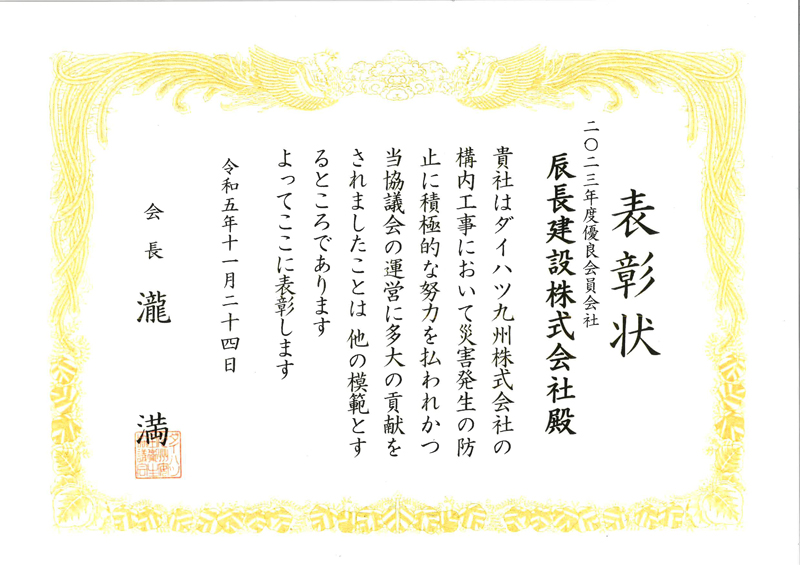 表彰状
二〇二三年度優良会員会社
辰長建設株式会社殿
貴社はダイハツ九州株式会社の
構内工事において災害発生の防
止に積極的な努力を払われかつ
当協議会の運営に多大の貢献を
されましたことは 他の模範とす
るところであります
よってここに表彰します
令和五年十一月二十四日
会長 瀧 満